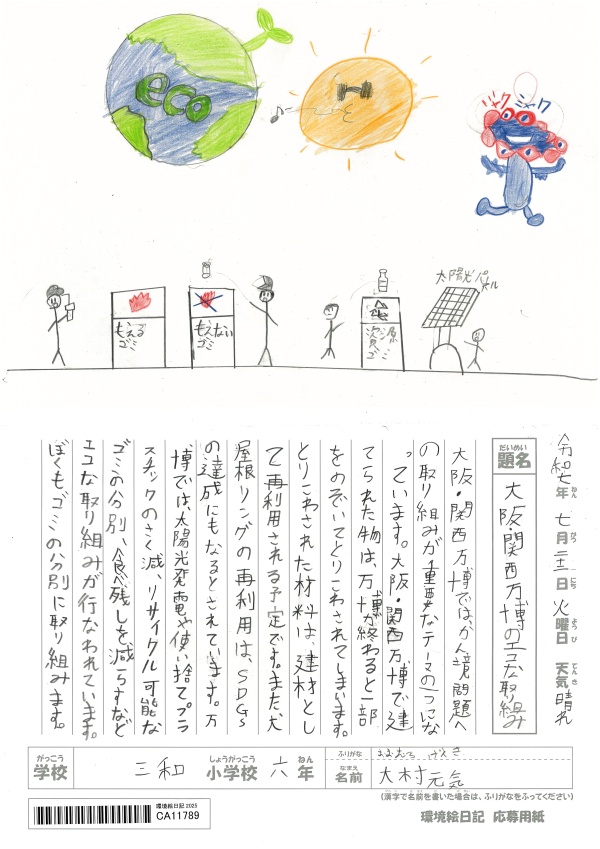 eco
ミャクミャク
太陽光パネル
もえる
ゴミ
もえない
ゴミ
資源
ゴミ
令和七年 七月二十二日 火曜日 天気 晴れ
ねん がつ にち ようび てんき
だいめい
題名
大阪・関西万博のエコな取り組み
大阪・関西万博では、かん境問題へ
の取り組みが重要なテーマの一つにな
っています。大阪・関西万博で建
てられた物は、万博が終わると一部
をのぞいてとりこわされてしまいます。
とりこわされた材料は、建材とし
て再利用される予定です。また大
屋根リングの再利用は、SDGs
の達成にもなるとされています。万
博では太陽光発電や使い捨てプラ
スチックのさく減、リサイクル可能な
ゴミの分別、食べ残しを減らすなど
エコな取り組みが行なわれています。
ぼくもゴミの分別に取り組みます。
がっこう しょうがっこう ねん
学校 三和 小学校 六年
ふりがな おおむら げんき
なまえ
名前 大村元気
(漢字で名前を書いた場合は、ふりがなをふってください)
環境絵日記 2025
CA11789
環境絵日記 応募用紙